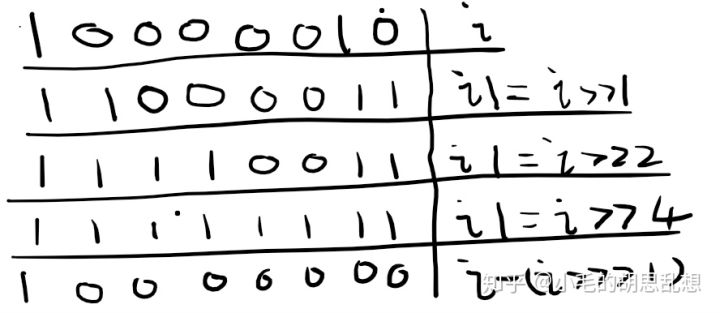 1 0 0 0 0 0 1 0 | i
1 1 0 0 0 0 1 1 | i|= i>>1
1 1 1 1 0 0 1 1 | i|= i>>2
1 1 1 1 1 1 1 1 | i|= i>>4
1 0 0 0 0 0 0 0 | i-(i>>>1)
知乎 @小毛的胡思乱想